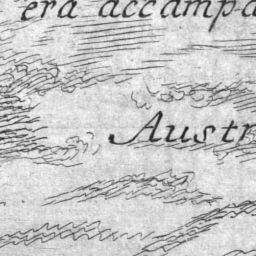 era accampa
Austr